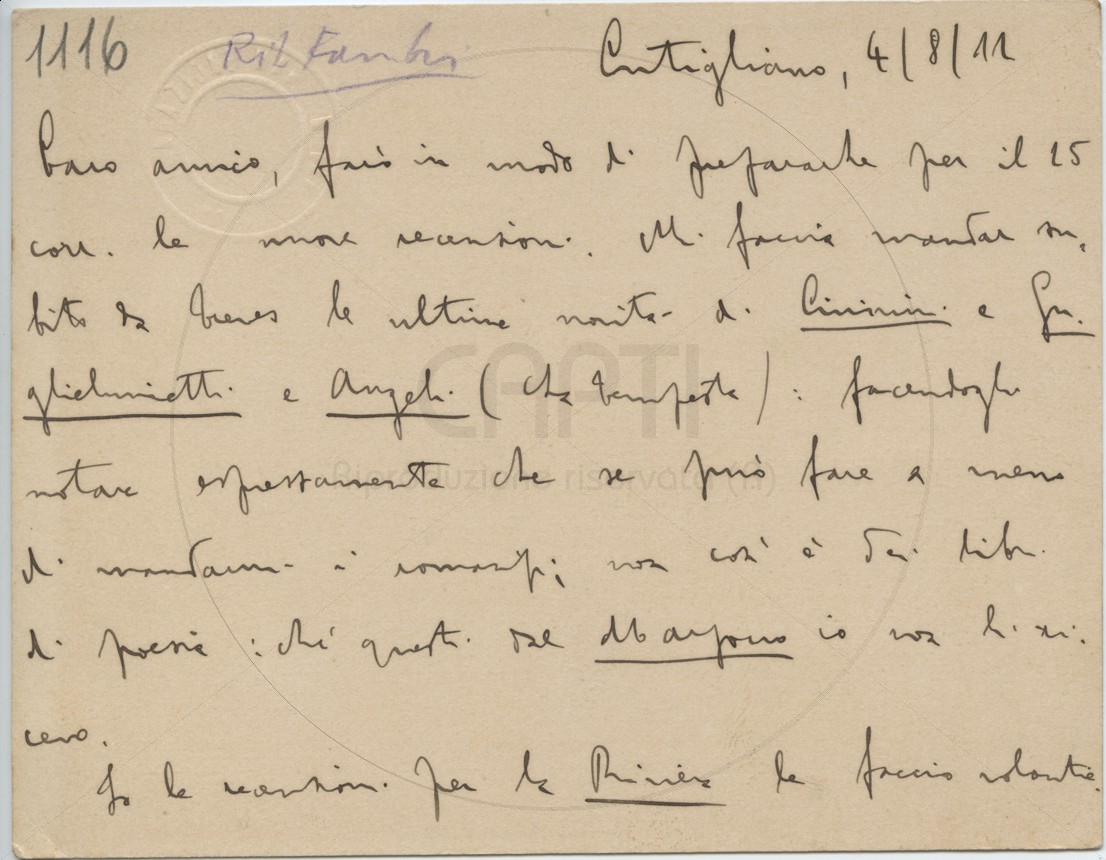 1116 Ril Fambri Cutigliano, 4/8/11
Caro amico, farò in modo di prepararle per il 15
corr. le nuove recensioni. Mi faccia mandar su-
bito da Treves le ultime novità di Civinini e Gu-
glielminetti e Angeli (Che tempesta): facendogli
notare espressamente che se può fare a meno
di mandarmi i romanzi; non così è dei libri
di poesia: ché questi dal Marzocco io non li ri-
cevo.
Io le recensioni per la Riviera le faccio volentie-
CAPTI
Riproduzione riservata (R)